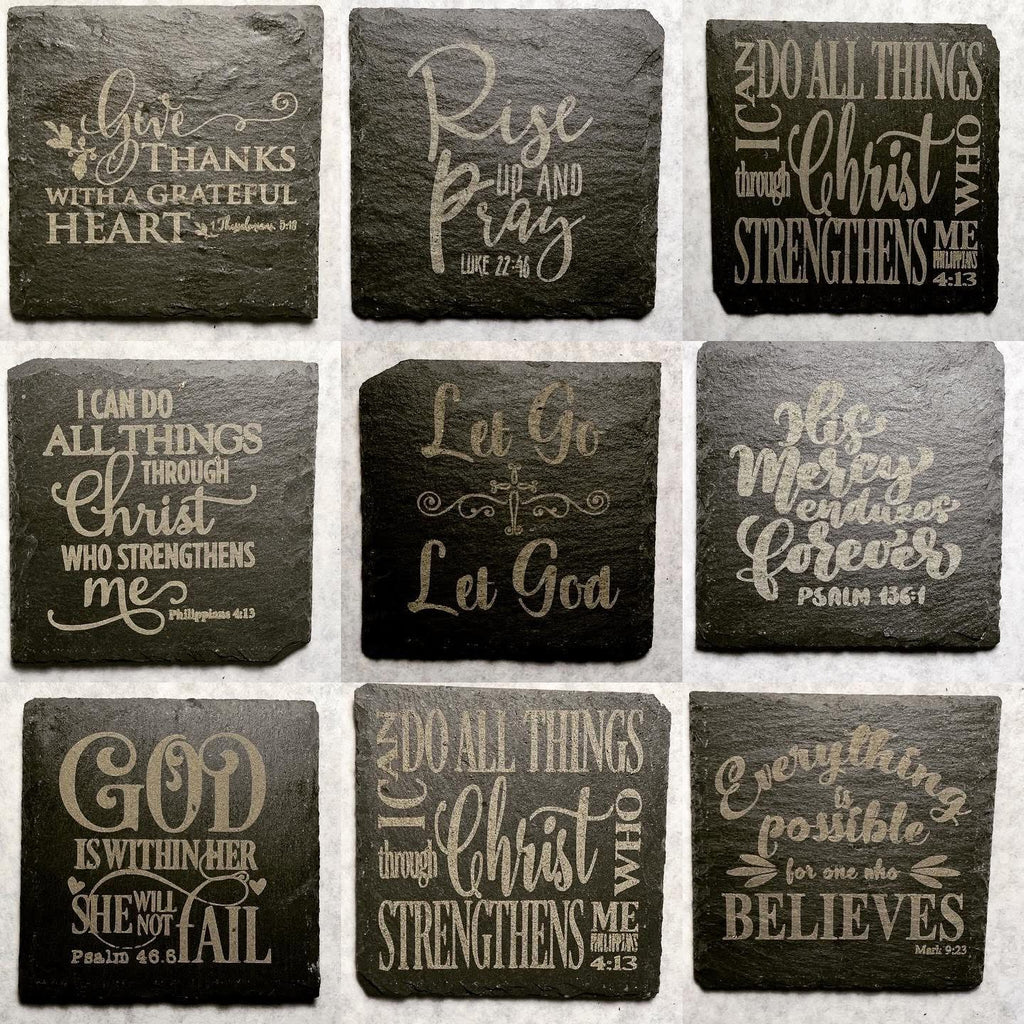 Give
THANKS
WITH A GRATEFUL
HEART 1 Thessalonians 5:18
Rise
UP AND
Pray
LUKE 22:46
I CAN DO ALL THINGS
through Christ WHO
STRENGTHENS ME
PHILIPPIANS
4:13
I CAN DO
ALL THINGS
THROUGH
Christ
WHO STRENGTHENS
me
Philippians 4:13
Let Go
Let God
His
Mercy
endures
forever
PSALM 136:1
GOD
IS WITHIN HER
SHE WILL NOT FAIL
Psalm 46.5
I CAN DO ALL THINGS
through Christ WHO
STRENGTHENS ME
PHILIPPIANS
4:13
Everything
is
possible
for one who
BELIEVES
Mark 9:23